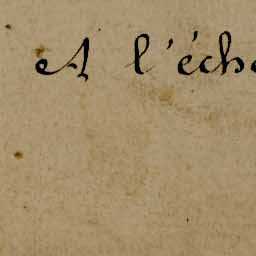 A l'éch